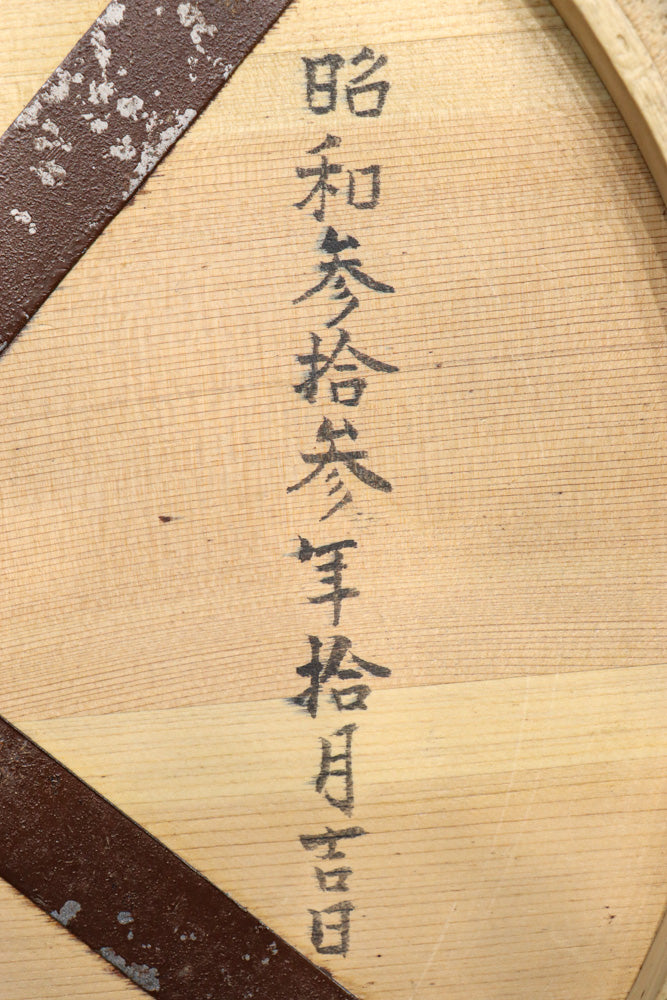 昭和参拾参年拾月吉日